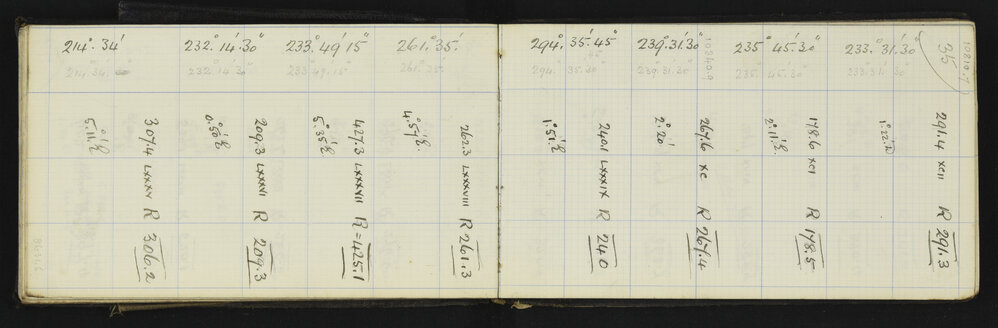 214°. 34'
232°. 14'. 30"
233°. 49' 15"
261°. 35'.
214. 34.
232°. 14' 30"
233°. 49'. 15"
261°. 35'.
307.4 LXXXV R 306.2
209.3 LXXXVI R 209.3
427.3 LXXXVII R = 425.1
262.3 LXXXVIII R 261.3
294°. 35'. 45"
239°. 31'. 30"
235° 45'. 30"
233°. 31'. 30"
35
294°. 35'. 30"
239°. 31'. 30"
235°. 45'. 30"
233°. 31'. 30"
2°. 20'
240.1 LXXXIX R 240
267.6 XC R 267.4
178.6 XCI R 178.5
291.4 XCII R 291.3